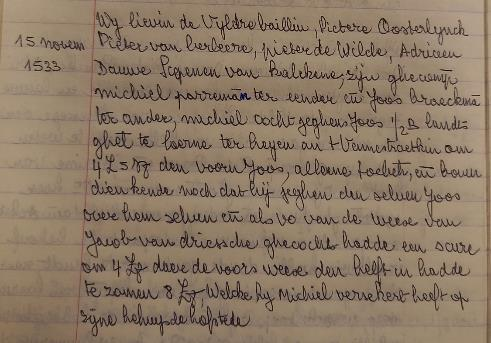 Wy lievin de Vyldre baillin, Pietere Oosterlynck
15 novem Pieter van herbeere, pieter de Wilde, Adriaen
1533 Dauwe Scepenen van Kalckene, zijn ghecomen
michiel parreman ter eender en Joos braeckmā
ter ander, machiel cocht jeghens Joos 1/2 B landes
ghet te loerne ter heyen an t Vennestraetkin om
4 £ 5 den voorn Joos, alleene toebeh, en boven
dien kende noch dat hij jeghen den selven Joos
over hem selven en als vo van de weese van
Jacob van driessche ghecocht hadde een scure
om 4 £ daer de voors weese den helft in hadde
te zamen 8 £, Welcke hy Michiel versekert heeft op
zijne behuysde hofstede